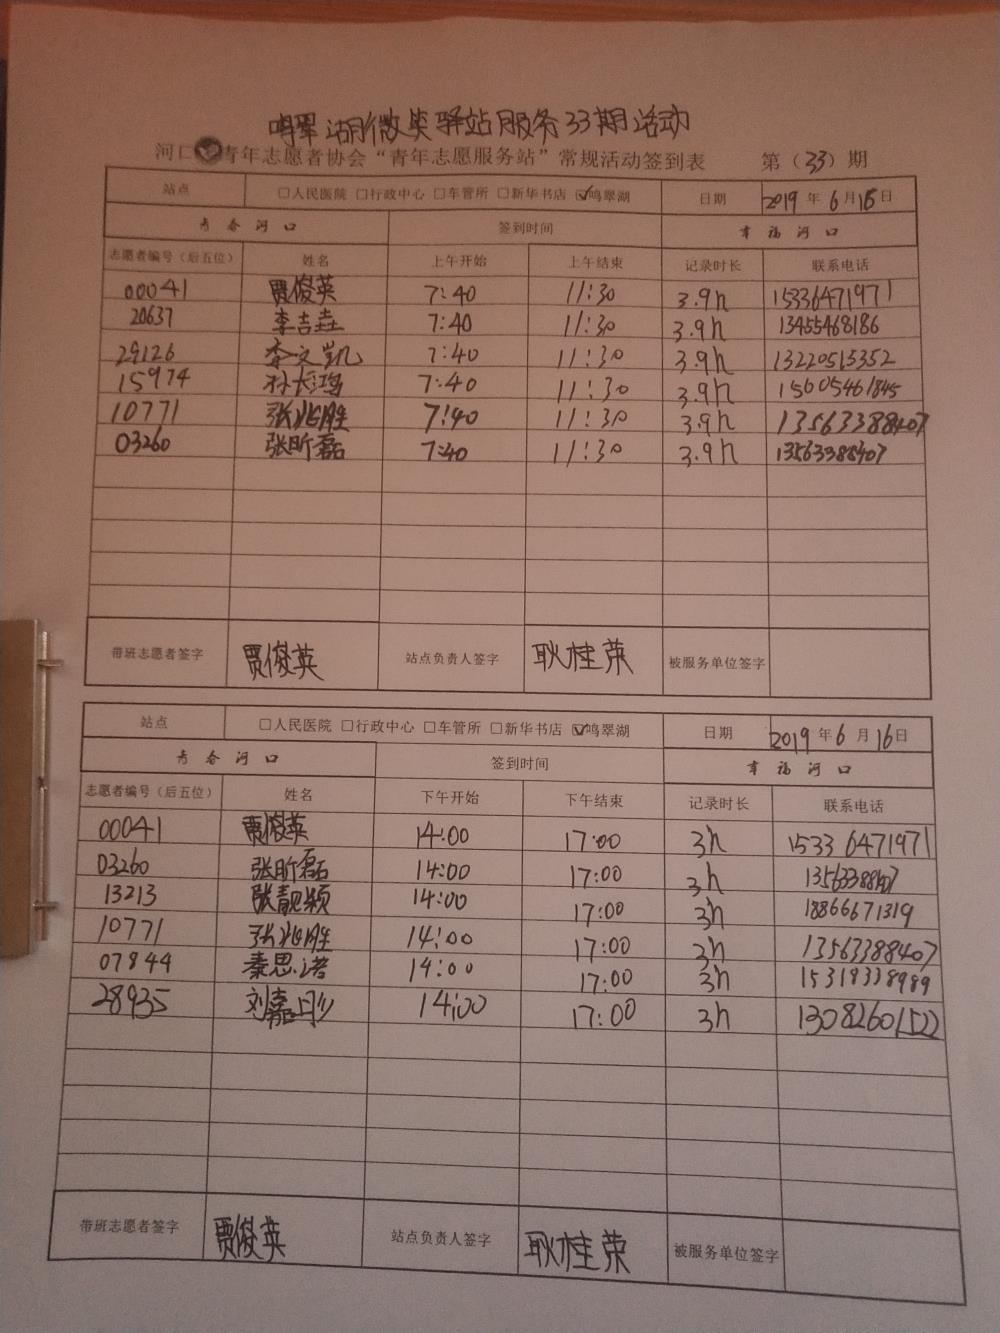 鸣翠湖微笑驿站服务33期活动
河口青年志愿者协会“青年志愿服务站”常规活动签到表 第（33）期
站点 □人民医院 □行政中心 □车管所 □新华书店 ☑鸣翠湖 日期 2019年6月16日
青春河口 签到时间 幸福河口
志愿者编号（后五位） 姓名 上午开始 上午结束 记录时长 联系电话
00041 贾俊英 7:40 11:30 3.9h 15336471971
20637 李吉垚 7:40 11:30 3.9h 13455468186
29126 李文凯 7:40 11:30 3.9h 13220515352
15974 孙长鸿 7:40 11:30 3.9h 15605461845
10771 张兆胜 7:40 11:30 3.9h 13563388407
03260 张昕磊 7:40 11:30 3.9h 13563388407
带班志愿者签字 贾俊英 站点负责人签字 耿桂荣 被服务单位签字
站点 □人民医院 □行政中心 □车管所 □新华书店 ☑鸣翠湖 日期 2019年6月16日
青春河口 签到时间 幸福河口
志愿者编号（后五位） 姓名 下午开始 下午结束 记录时长 联系电话
00041 贾俊英 14:00 17:00 3h 15336471971
03260 张昕磊 14:00 17:00 3h 13563388407
13213 张靓颖 14:00 17:00 3h 18866671319
10771 张兆胜 14:00 17:00 3h 13563388407
07844 秦思诺 14:00 17:00 3h 15318338989
28935 刘嘉 14:00 17:00 3h 13082601522
带班志愿者签字 贾俊英 站点负责人签字 耿桂荣 被服务单位签字